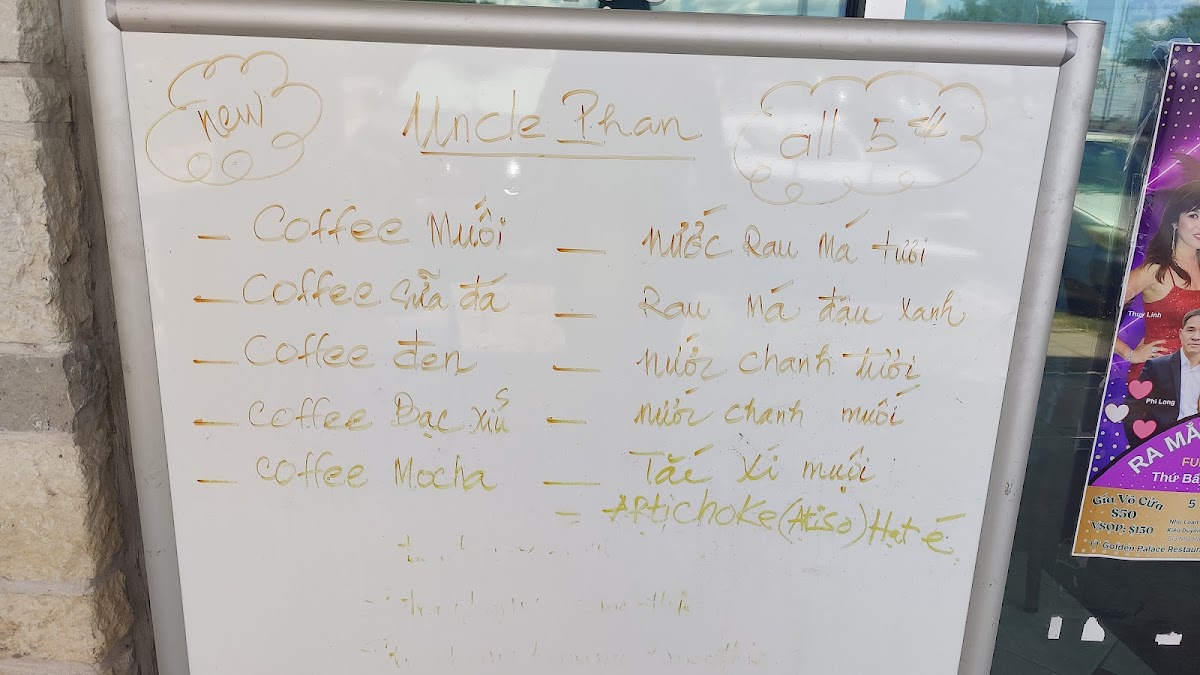 new
Uncle Phan
all 5
- Coffee Muối
- Coffee sữa đá
- Coffee đen
- Coffee Bạc xiủ
- Coffee Mocha
- nước Rau Má tươi
- Rau Má đậu xanh
- nước chanh tươi
- nước chanh muối
- Tắc xí muội
- Artichoke (Atiso) Hạt é
Thuy Linh
Phi Long
RA MẮ
FU
Thứ Bả
Gía Vô Cửa
$50
VSOP: $150
5
Kiều Duyên
11 Golden Palace Restaur